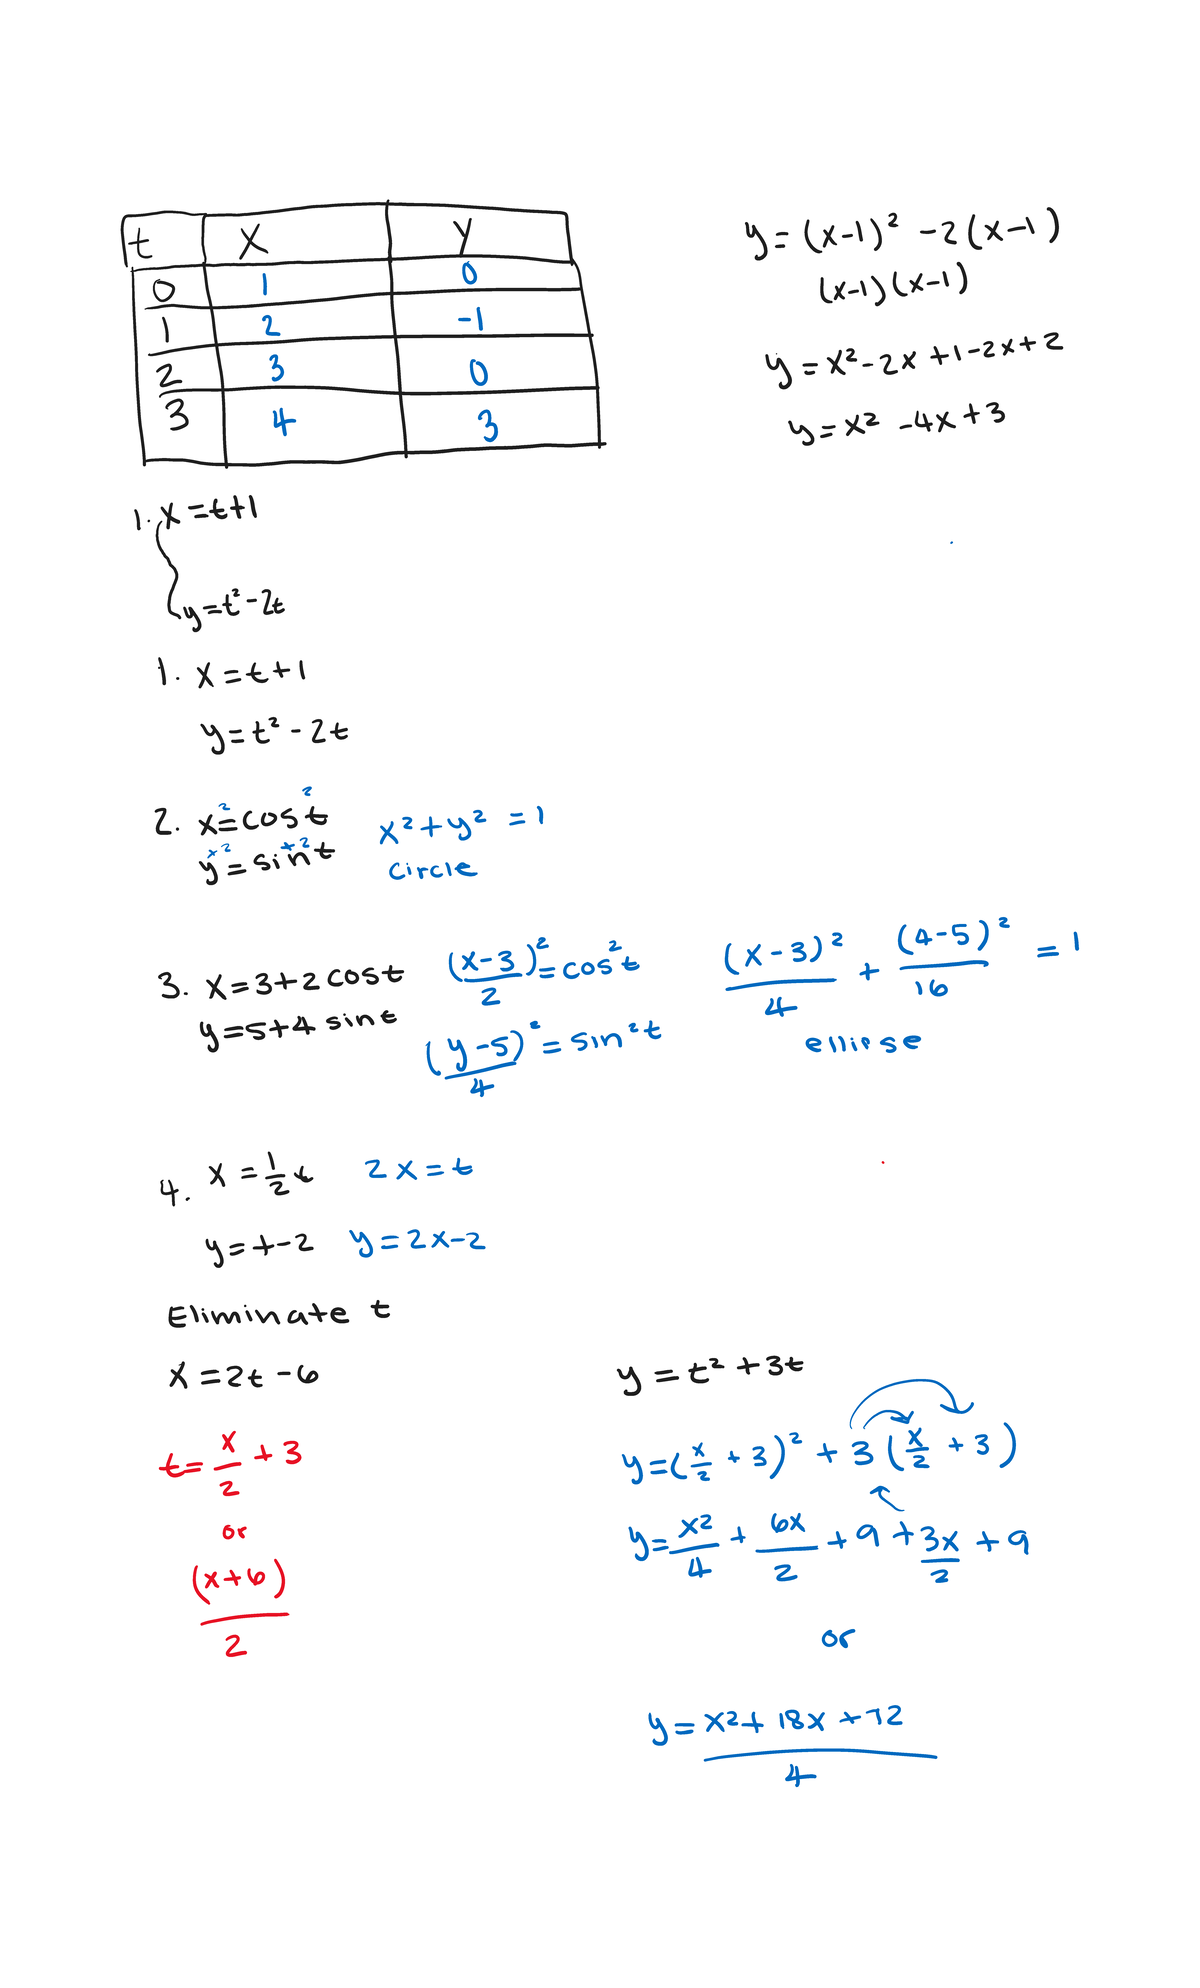 t X Y
0 1 0
1 2 -1
2 3 0
3 4 3
y = (x-1)² -2(x-1)
(x-1)(x-1)
y = x²-2x+1-2x+2
y = x² -4x+3
1. x = t+1
y = t²-2t
1. x = t+1
y = t² - 2t
2. x² = cos² t
y² = sin² t
x²+y² = 1
circle
3. x = 3+2 cos t
y = 5+4 sin t
(x-3)²/2 = cos² t
(y-5)²/4 = sin² t
(x-3)²/4 + (4-5)²/16 = 1
ellipse
4. x = 1/2 t 2x = t
y = t-2 y = 2x-2
Eliminate t
x = 2t - 6
t = x/2 + 3
or
(x+6)/2
y = t² + 3t
y = (x/2 + 3)² + 3(x/2 + 3)
y = x²/4 + 6x/2 + 9 + 3x/2 + 9
or
y = x² + 18x + 72/4